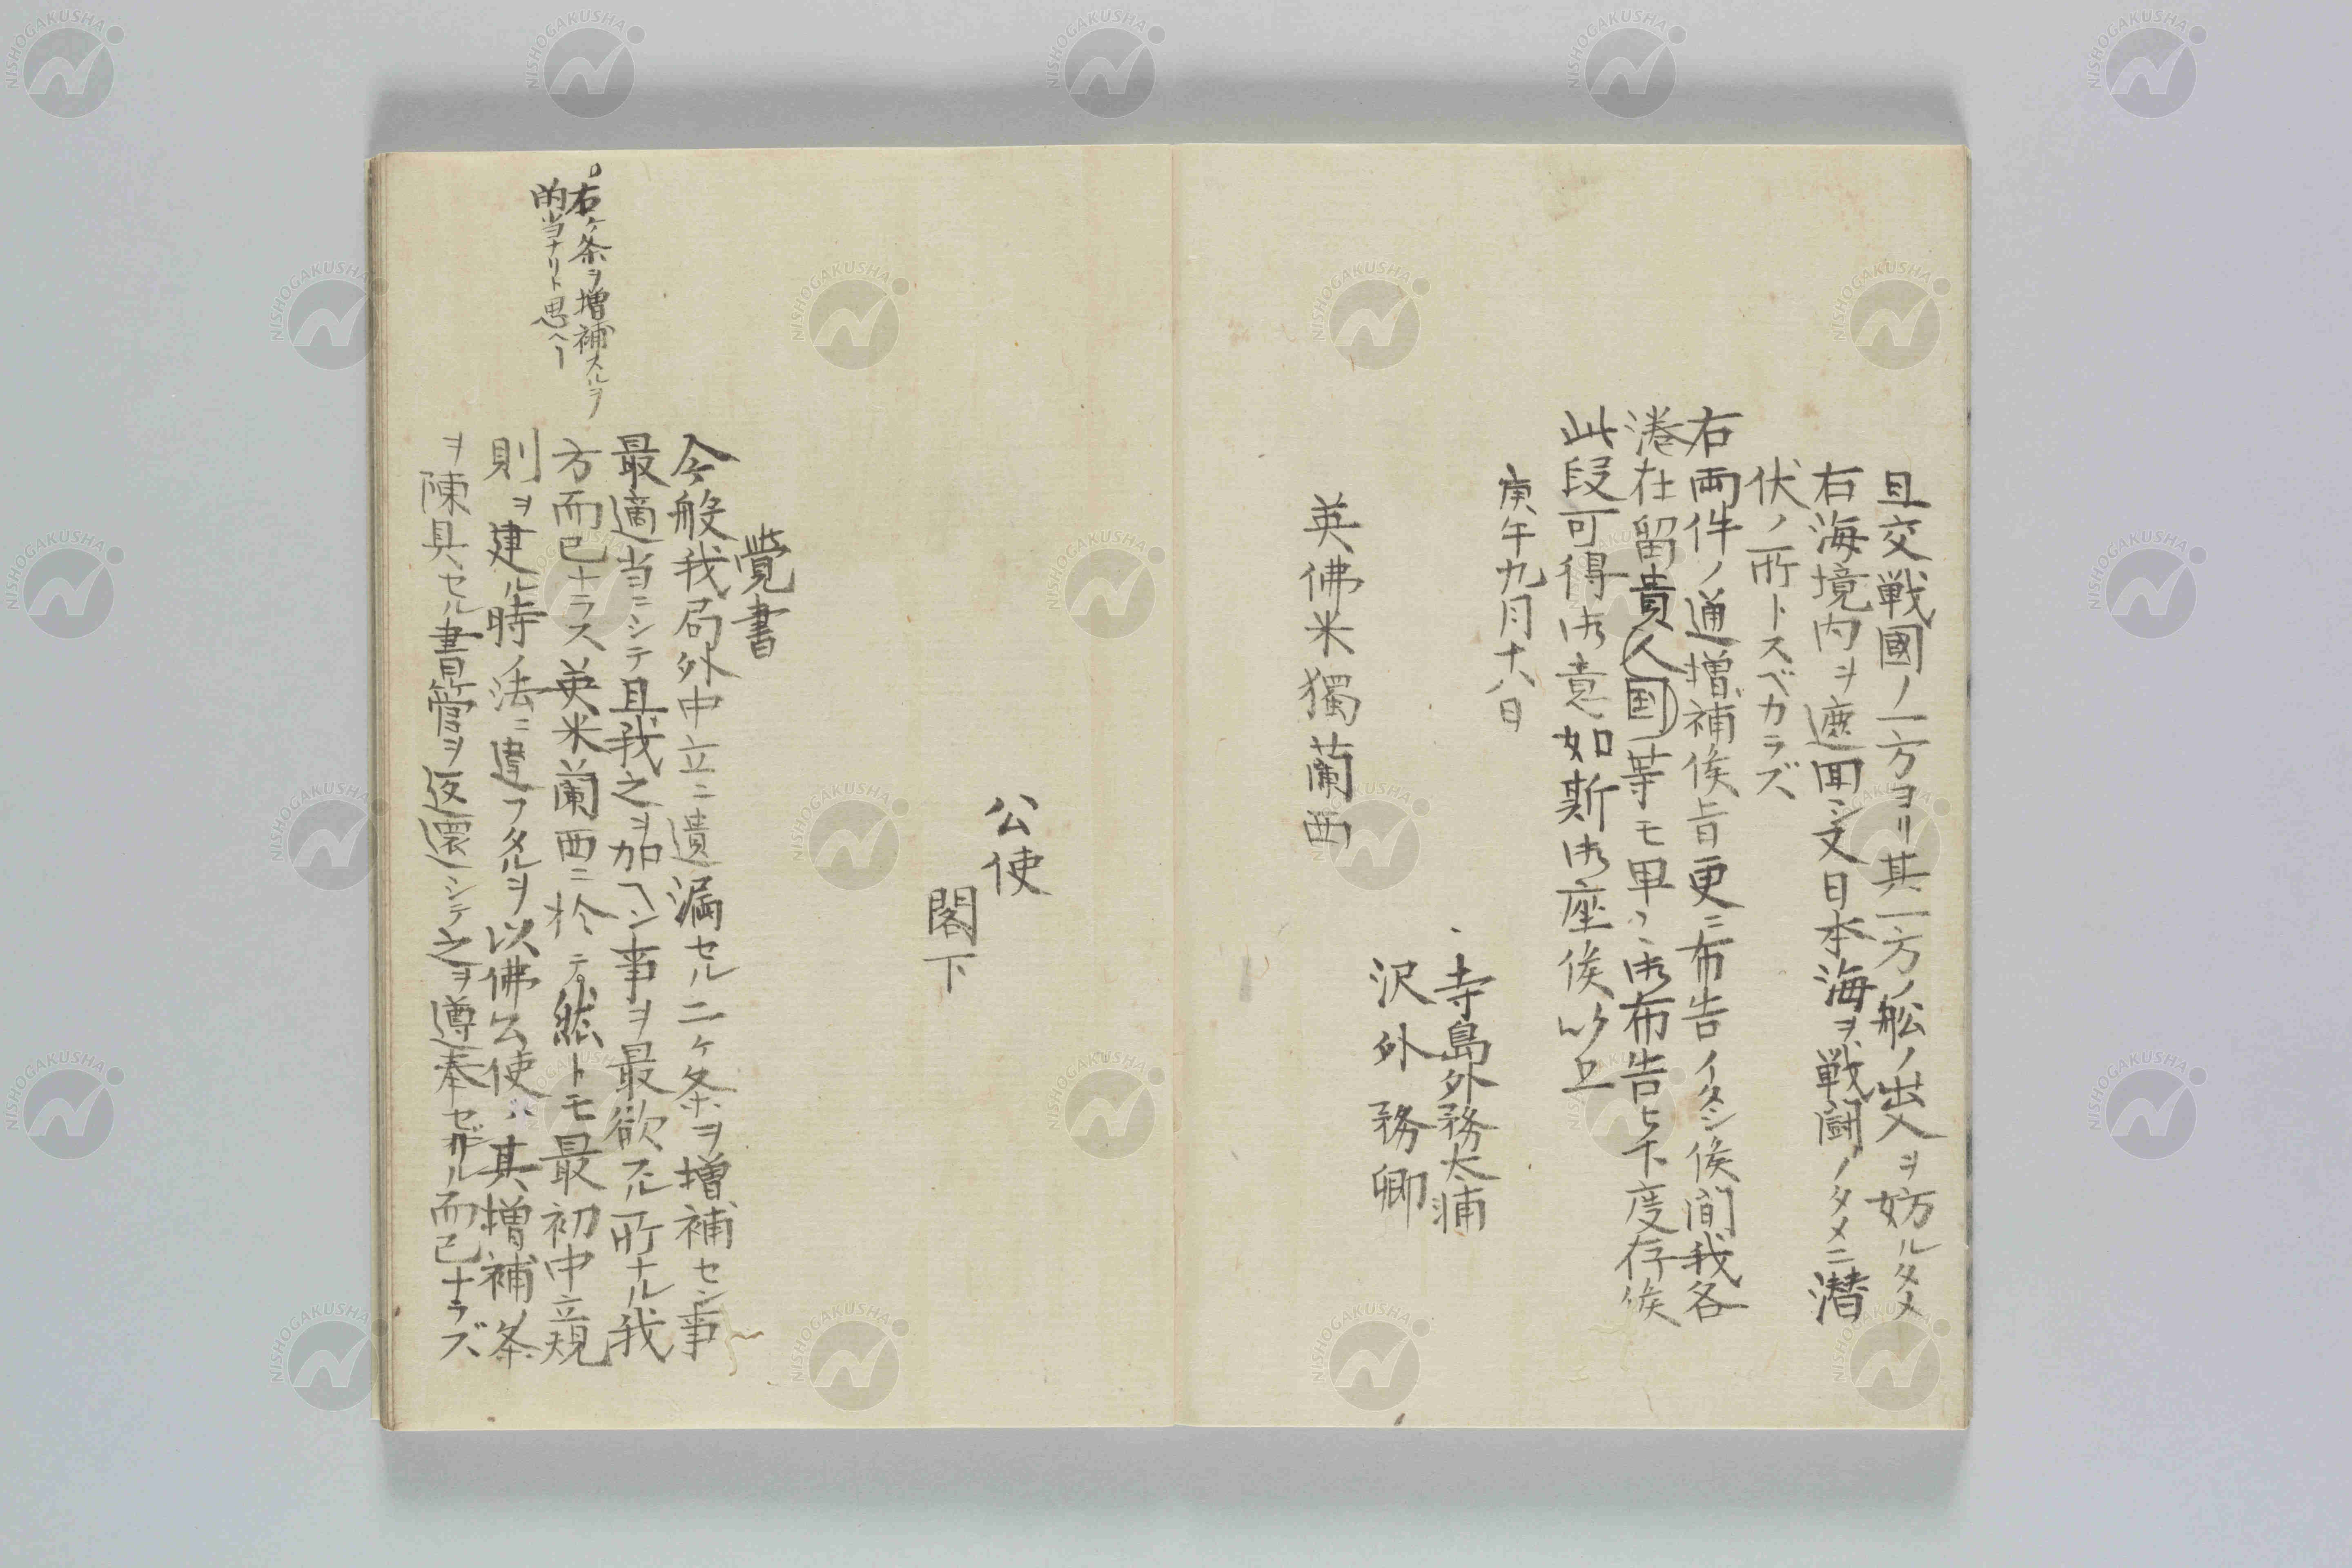 且交戦國ノ一方ヨリ其一方ノ舩ノ出入ヲ妨ルタメ
右海境内ヲ遮囬シ又日本海ヲ戦闘ノタメニ潜
伏ノ所トスベカラズ
右両件ノ通増補候旨更ニ布告イタシ候間我各
港在留貴人国等モ早々御布告被下度存候
此段可得御意如斯御座候以上
庚午九月十八日
寺島外務大輔
沢外務卿
英佛米獨蘭西
公使
閣下
覺書
今般我局外中立ニ遺漏セル二ケ条ヲ増補セン事
最適当ニシテ且我之ヲ加ヘン事ヲ最欲スル所ナル我
方而已ナラス英米蘭西ニ於テ
然トモ最初中立規
則ヲ建ル時ノ法ニ違フタルヲ以佛公使ハ其増補ノ条
ヲ陳具セル書管ヲ返還シテ之ヲ遵奉セザル而已ナラズ
右ケ条ヲ増補スルヲ
的当ナリト思ヘー
NISHOGAKUSHA